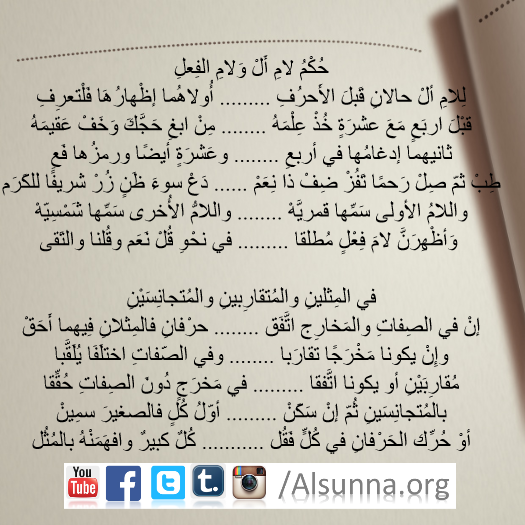 حُكْمُ لامِ أَلْ وَلامِ الفِعلِ
لِلامِ ألْ حالانِ قَبلَ الأحرُفِ ......... أُولاهُما إظْهارُهَا فَلْتعرِفِ
قبْلَ اربَعٍ مَعَ عشرَةٍ خُذْ عِلْمَهُ ........ مِنْ ابغِ حَجَّكَ وَخَفْ عَقيمَهُ
ثانيهما إدغامُها في أربعِ ........ وعَشرَةٍ أيضًا ورمزُها فَعِ
طِبْ ثمّ صِلْ رَحمًا تَفُزْ ضِفْ ذَا نِعَمْ ...... دَعْ سوءَ ظَنٍ زُرْ شريفًا للكَرَم
واللامُ الأولى سَمِّها قمريَّهْ ........ واللامُ الأُخرى سَمِّها شَمْسِيّهْ
وَأظْهِرَنَّ لامَ فِعْلٍ مُطلقا ......... في نحْوِ قُلْ نَعَم وقُلنا والتَقى
في المِثلينِ والمُتقاربينِ والمُتجانِسَيْنِ
إنْ في الصِفاتِ والمَخارِجِ اتَّفَقَ ........ حرْفانِ فالمِثلانِ فِيهما أَحَقْ
وإِنْ يكونا مَخْرَجًا تقارَبا ........ وفي الصّفاتِ اختلَفَا يُلَقَّبا
مُقارِبَيْنِ أو يكونا اتَّفقا ......... في مَخرَجٍ دُونَ الصِفاتِ حُقِّقا
بالمُتجانِسَينِ ثُمّ إنْ سَكَنْ ......... أوّلُ كُلٍ فالصغيرَ سمِينْ
أوْ حُرِّك الحَرْفانِ في كُلٍّ فَقُل .......... كُلٌ كبيرٌ وافهَمَنْهُ بالمُثُل
You Tube f t t. /Alsunna.org